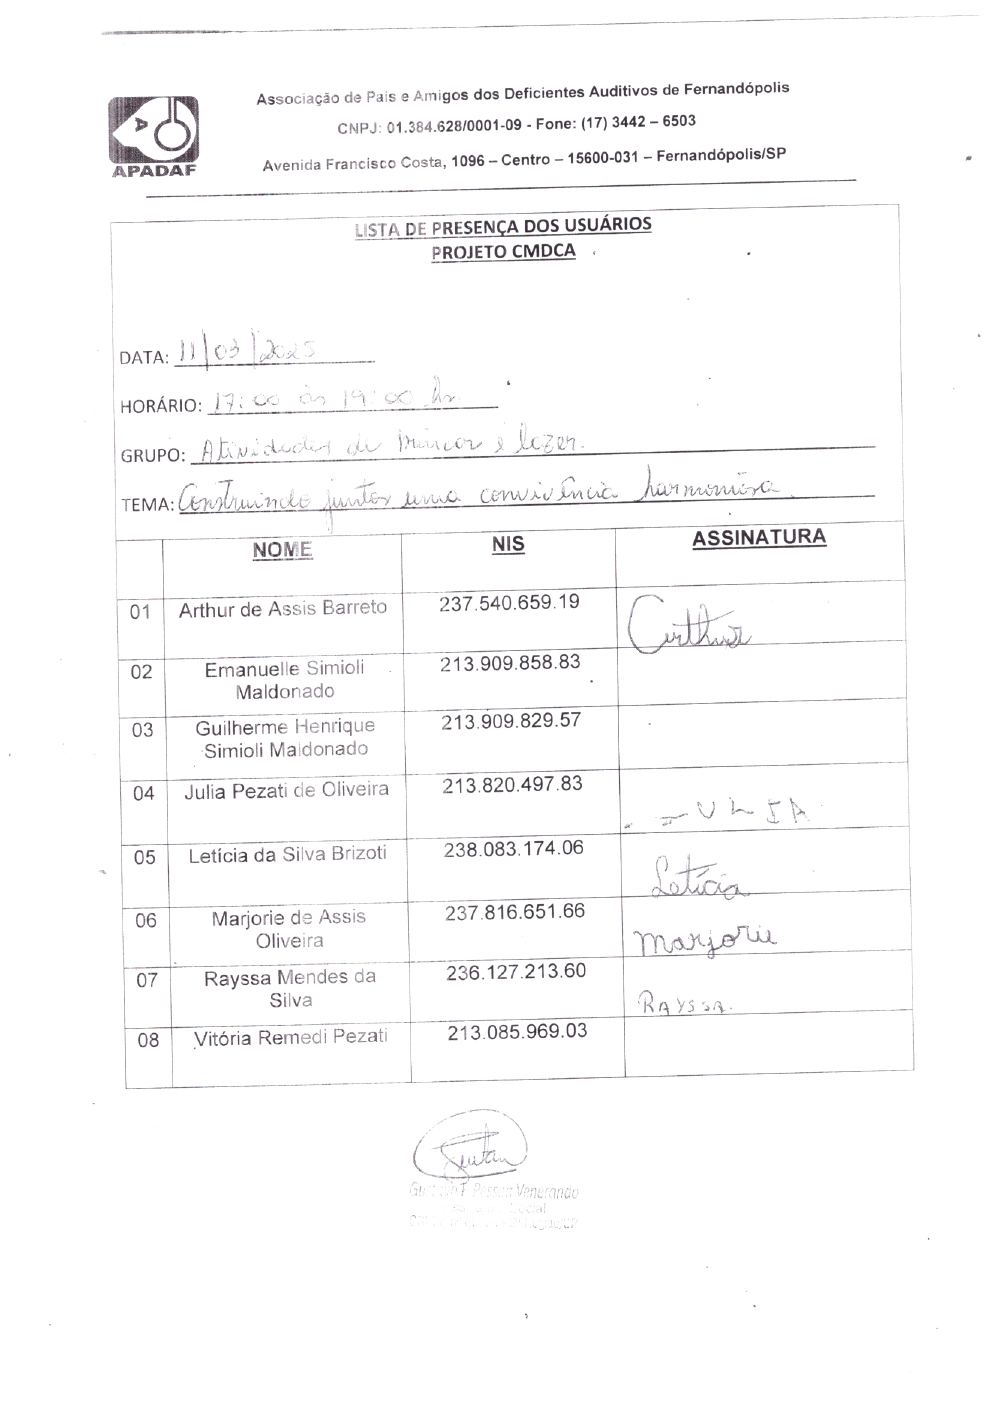 Associação de Pais e Amigos dos Deficientes Auditivos de Fernandópolis
CNPJ: 01.384.628/0001-09 - Fone: (17) 3442 – 6503
Avenida Francisco Costa, 1096 – Centro – 15600-031 – Fernandópolis/SP
APADAF
LISTA DE PRESENÇA DOS USUÁRIOS
PROJETO CMDCA
DATA: 11/03/2025
HORÁRIO: 17:00 às 19:00 hs
GRUPO: Atividades de brincar e lazer.
TEMA: Construindo juntos uma convivência harmoniosa.
NOME NIS ASSINATURA
01 Arthur de Assis Barreto 237.540.659.19 Arthur
02 Emanuelle Simioli Maldonado 213.909.858.83
03 Guilherme Henrique Simioli Maldonado 213.909.829.57
04 Julia Pezati de Oliveira 213.820.497.83
05 Letícia da Silva Brizoti 238.083.174.06 Letícia
06 Marjorie de Assis Oliveira 237.816.651.66 Marjorie
07 Rayssa Mendes da Silva 236.127.213.60 RAYSSA.
08 Vitória Remedi Pezati 213.085.969.03
Venerando